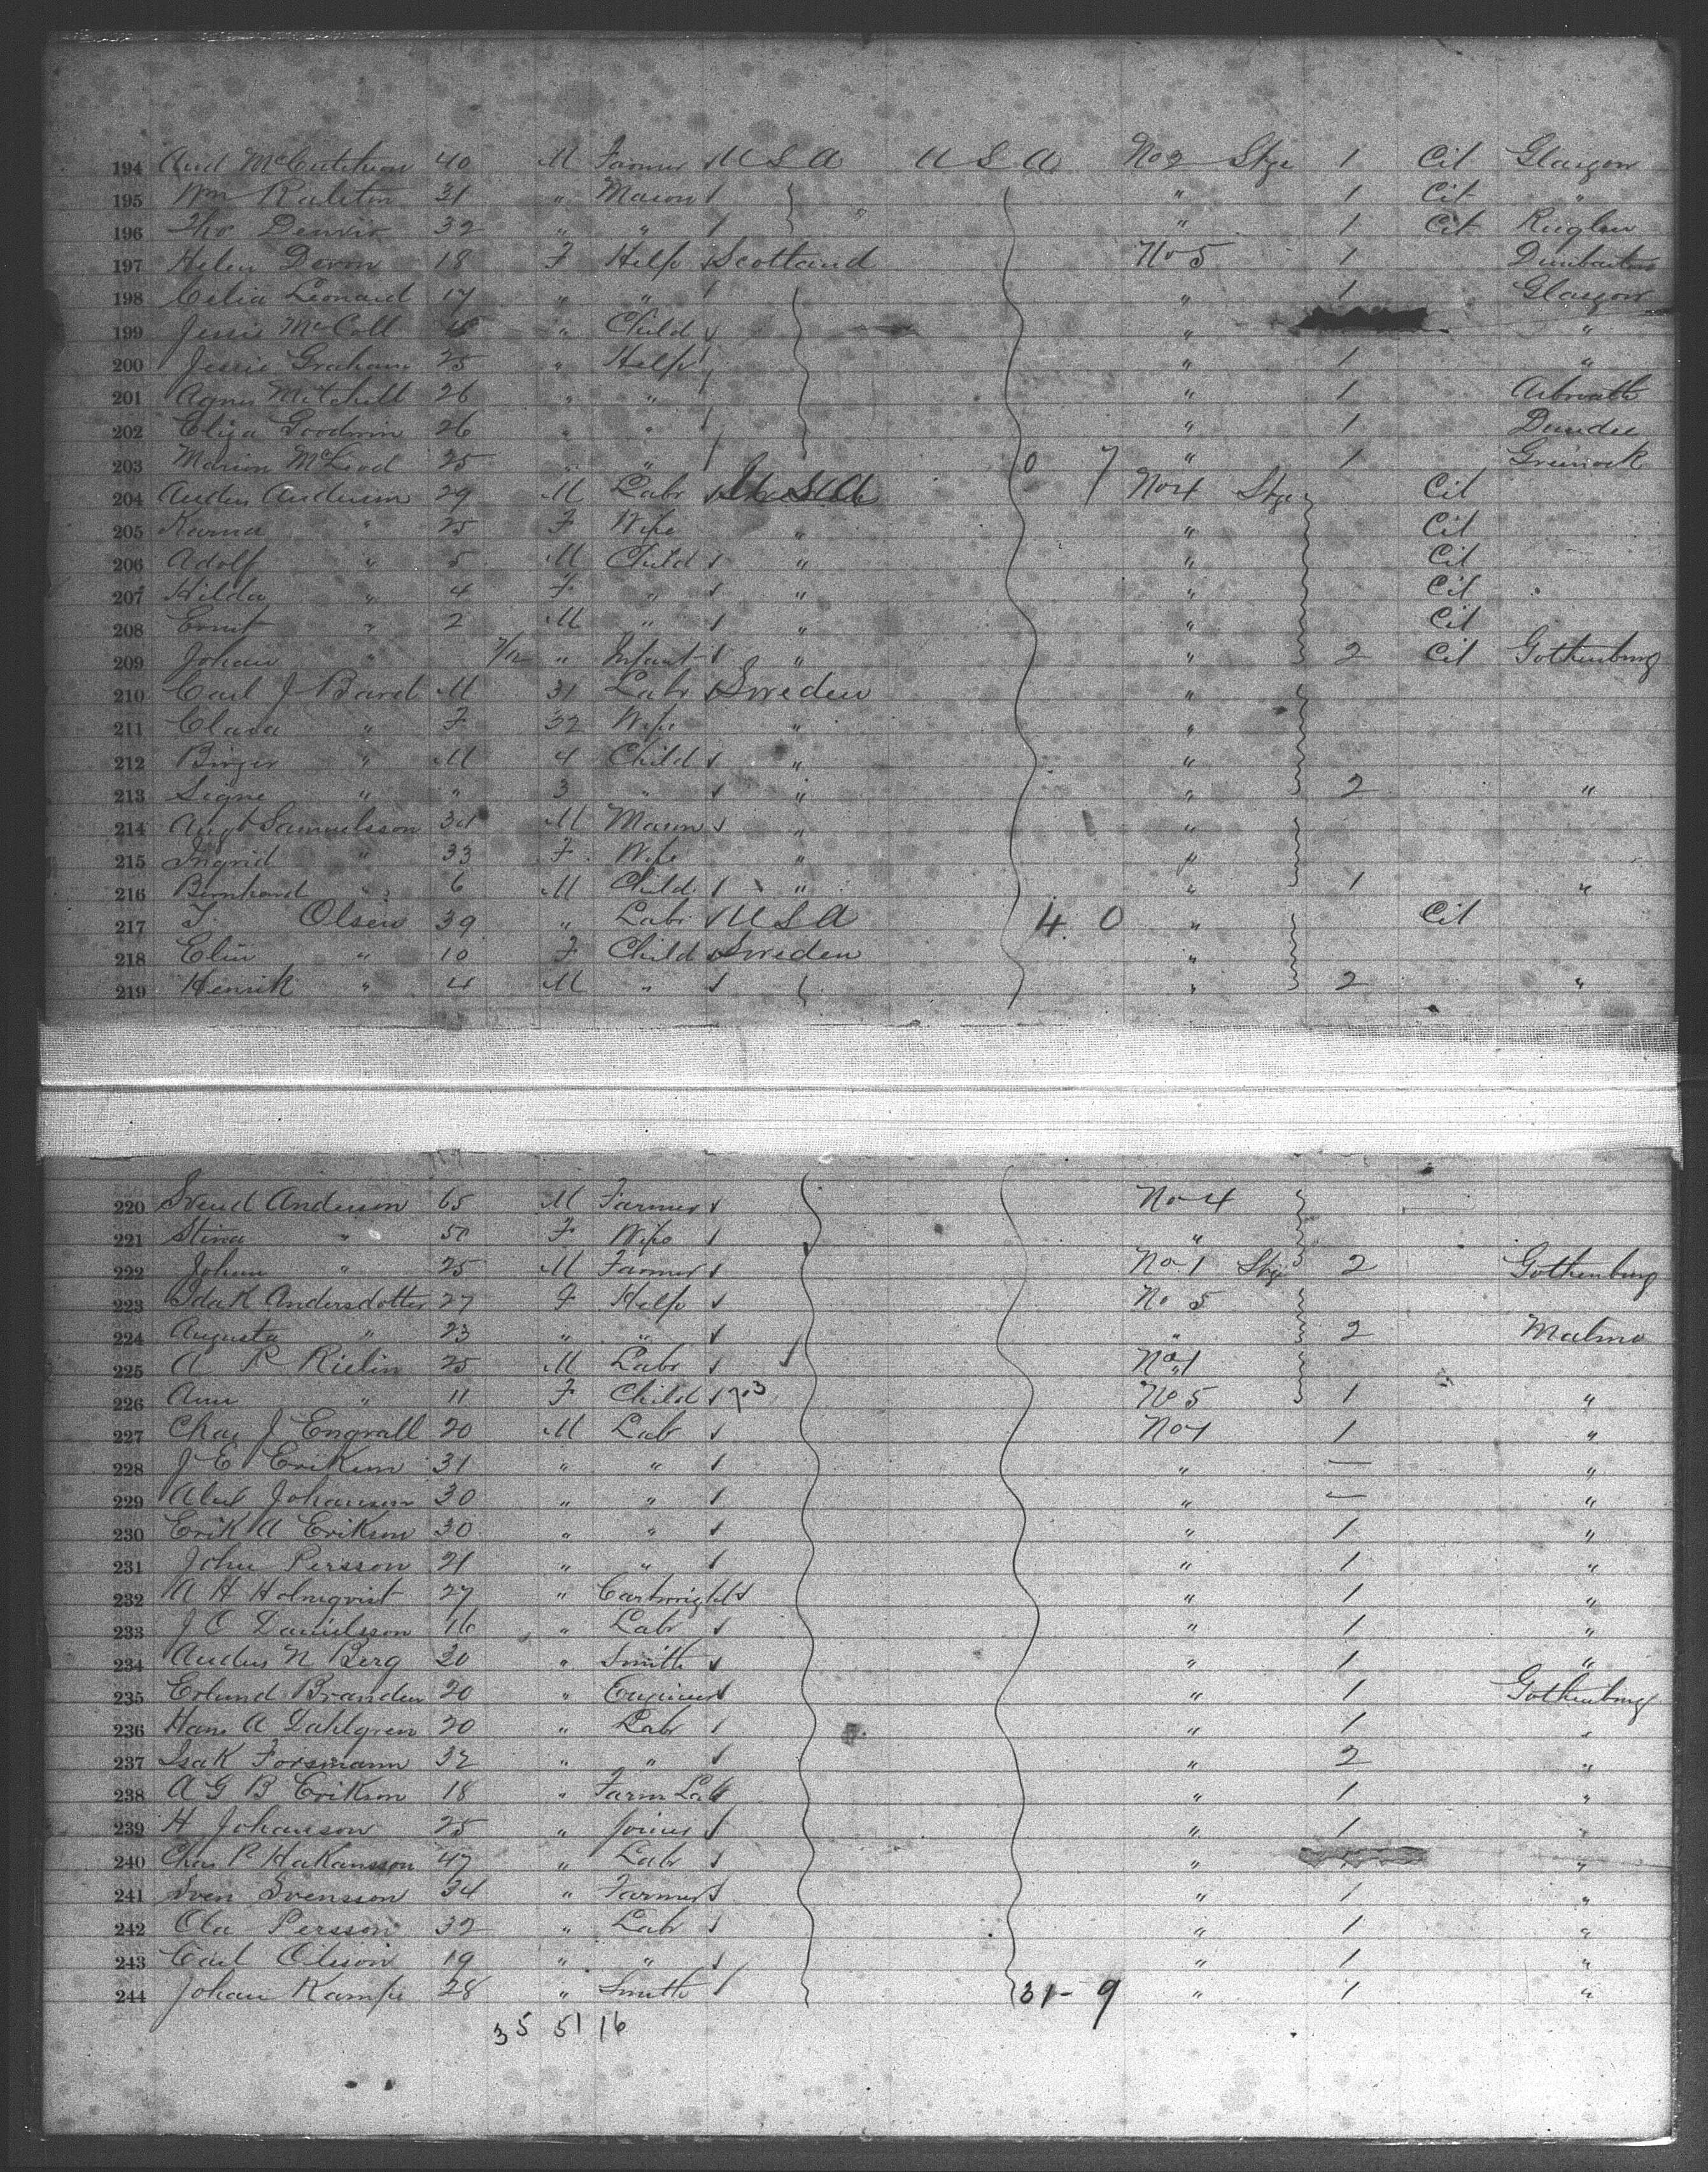 194 And McCutcheon 40 M Farmer U S A U S A No 2 Stge 1 Cit Glasgow
195 Wm Ralston 31 " Mason " " 1 Cit "
196 Tho 32 " " " 1 Cit
197 Helen Devon 18 F Help Scotland No 5 1 Dumbarton
198 Celia Leonard 17 " " " 1 Glasgow
199 Jessie McColl " Child " "
200 Jessie Graham 25 " Help " 1 "
201 Agnes Mitchell 26 " " " 1 Arbroath
202 Eliza Goodwin 26 " " " 1 Dundee
203 Marion McLeod 25 " " 0 7 " 1 Greenock
204 Anders Anderson 29 M Labr U S A No 4 Stge Cit
205 Karna " 25 F Wife " " Cit
206 Adolf " 5 M Child " " Cit
207 Hilda " 4 F " " " Cit
208 Ernst " 2 M " " " Cit
209 Johan " 7/12 " Infant " " 2 Cit Gothenburg
210 Carl J Bard M 31 Labr Sweden "
211 Clara " F 32 Wife " "
212 Birger " M 4 Child " "
213 Signe " " 3 " " " 2 "
214 Augt Samuelsson 34 M Mason " "
215 Ingrid " 33 F Wife " "
216 Bernhard " 6 M Child " " 1 "
217 Olsen 39 " Labr U S A 4 0 " Cit
218 Elin " 10 F Child Sweden "
219 Henrik " 4 M " " 2 "
220 Svend Anderson 65 M Farmer No 4
221 Stina " 50 F Wife "
222 Johan " 25 M Farmer No 1 Stge 2 Gothenburg
223 Ida K Andersdotter 27 F Help No 5
224 Augusta " 23 " " " 2 Malmo
225 A P Rielin 25 M Labr No 1
226 Ann " 11 F Child No 5 1 "
227 Chas J Engvall 20 M Labr No 1 1 "
228 J E Erikson 31 " " " — "
229 Alex Johanson 30 " " " — "
230 Erik A Erikson 30 " " " 1 "
231 John Persson 21 " " " 1 "
232 A H Holmqvist 27 " Cartwright " 1 "
233 J O Danielsson 16 " Labr " 1 "
234 Anders N Berg 20 " Smith " 1 "
235 Erlund Branden 20 " Engineer " 1 Gothenburg
236 Hans A Dahlgren 20 " Labr " 1 "
237 Isak Forsmann 32 " " " 2 "
238 A G B Erikson 18 " Farm Lab " 1 "
239 H Johanson 25 " Joiner " 1 "
240 Chas P Hakansson 47 " Labr " "
241 Sven Svensson 34 " Farmer " 1 "
242 Ola Persson 32 " Labr " 1 "
243 Carl Olsson 19 " " " 1 "
244 Johan Kampe 28 " Smith 31 - 9 " 1 "
35 51 16